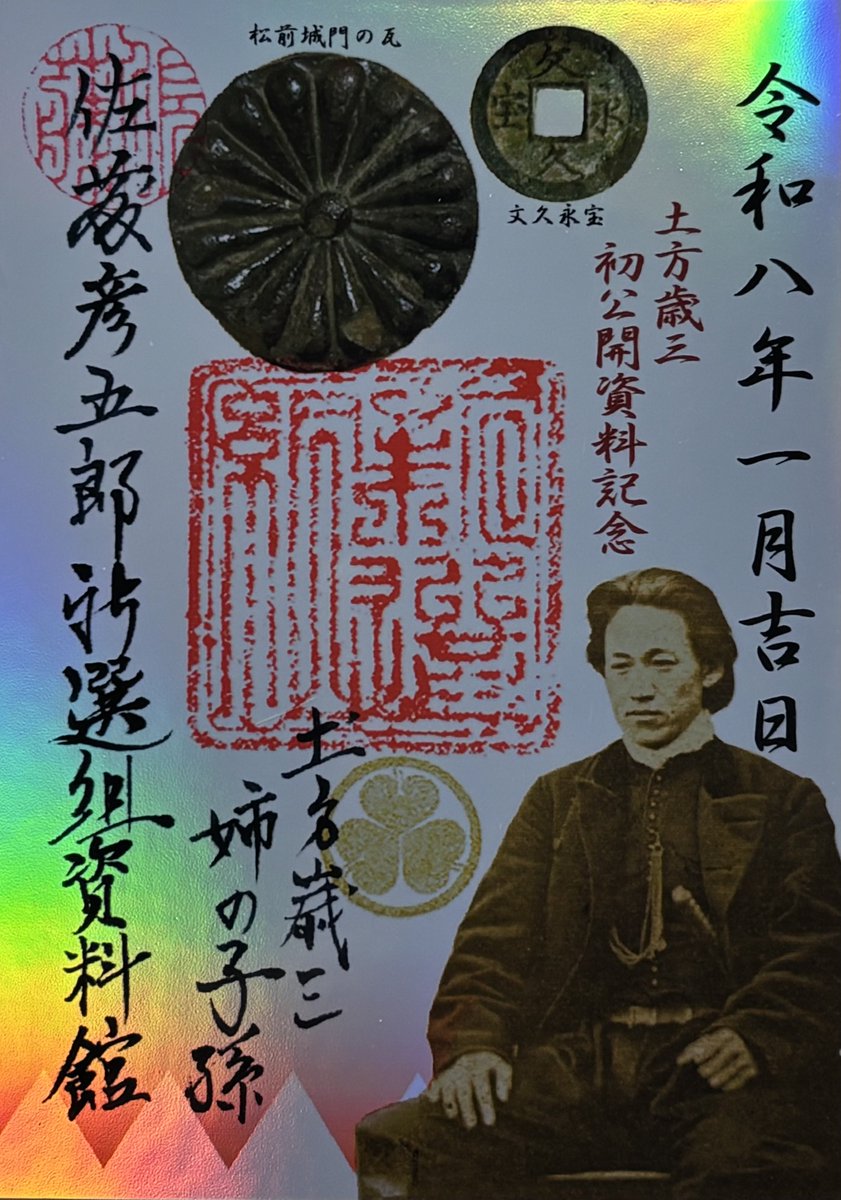 令和八年一月吉日
土方歳三
初公開資料記念
松前城門の瓦
文久永宝
文久永宝
土方歳三
姉の子孫
佐藤彦五郎新選組資料館